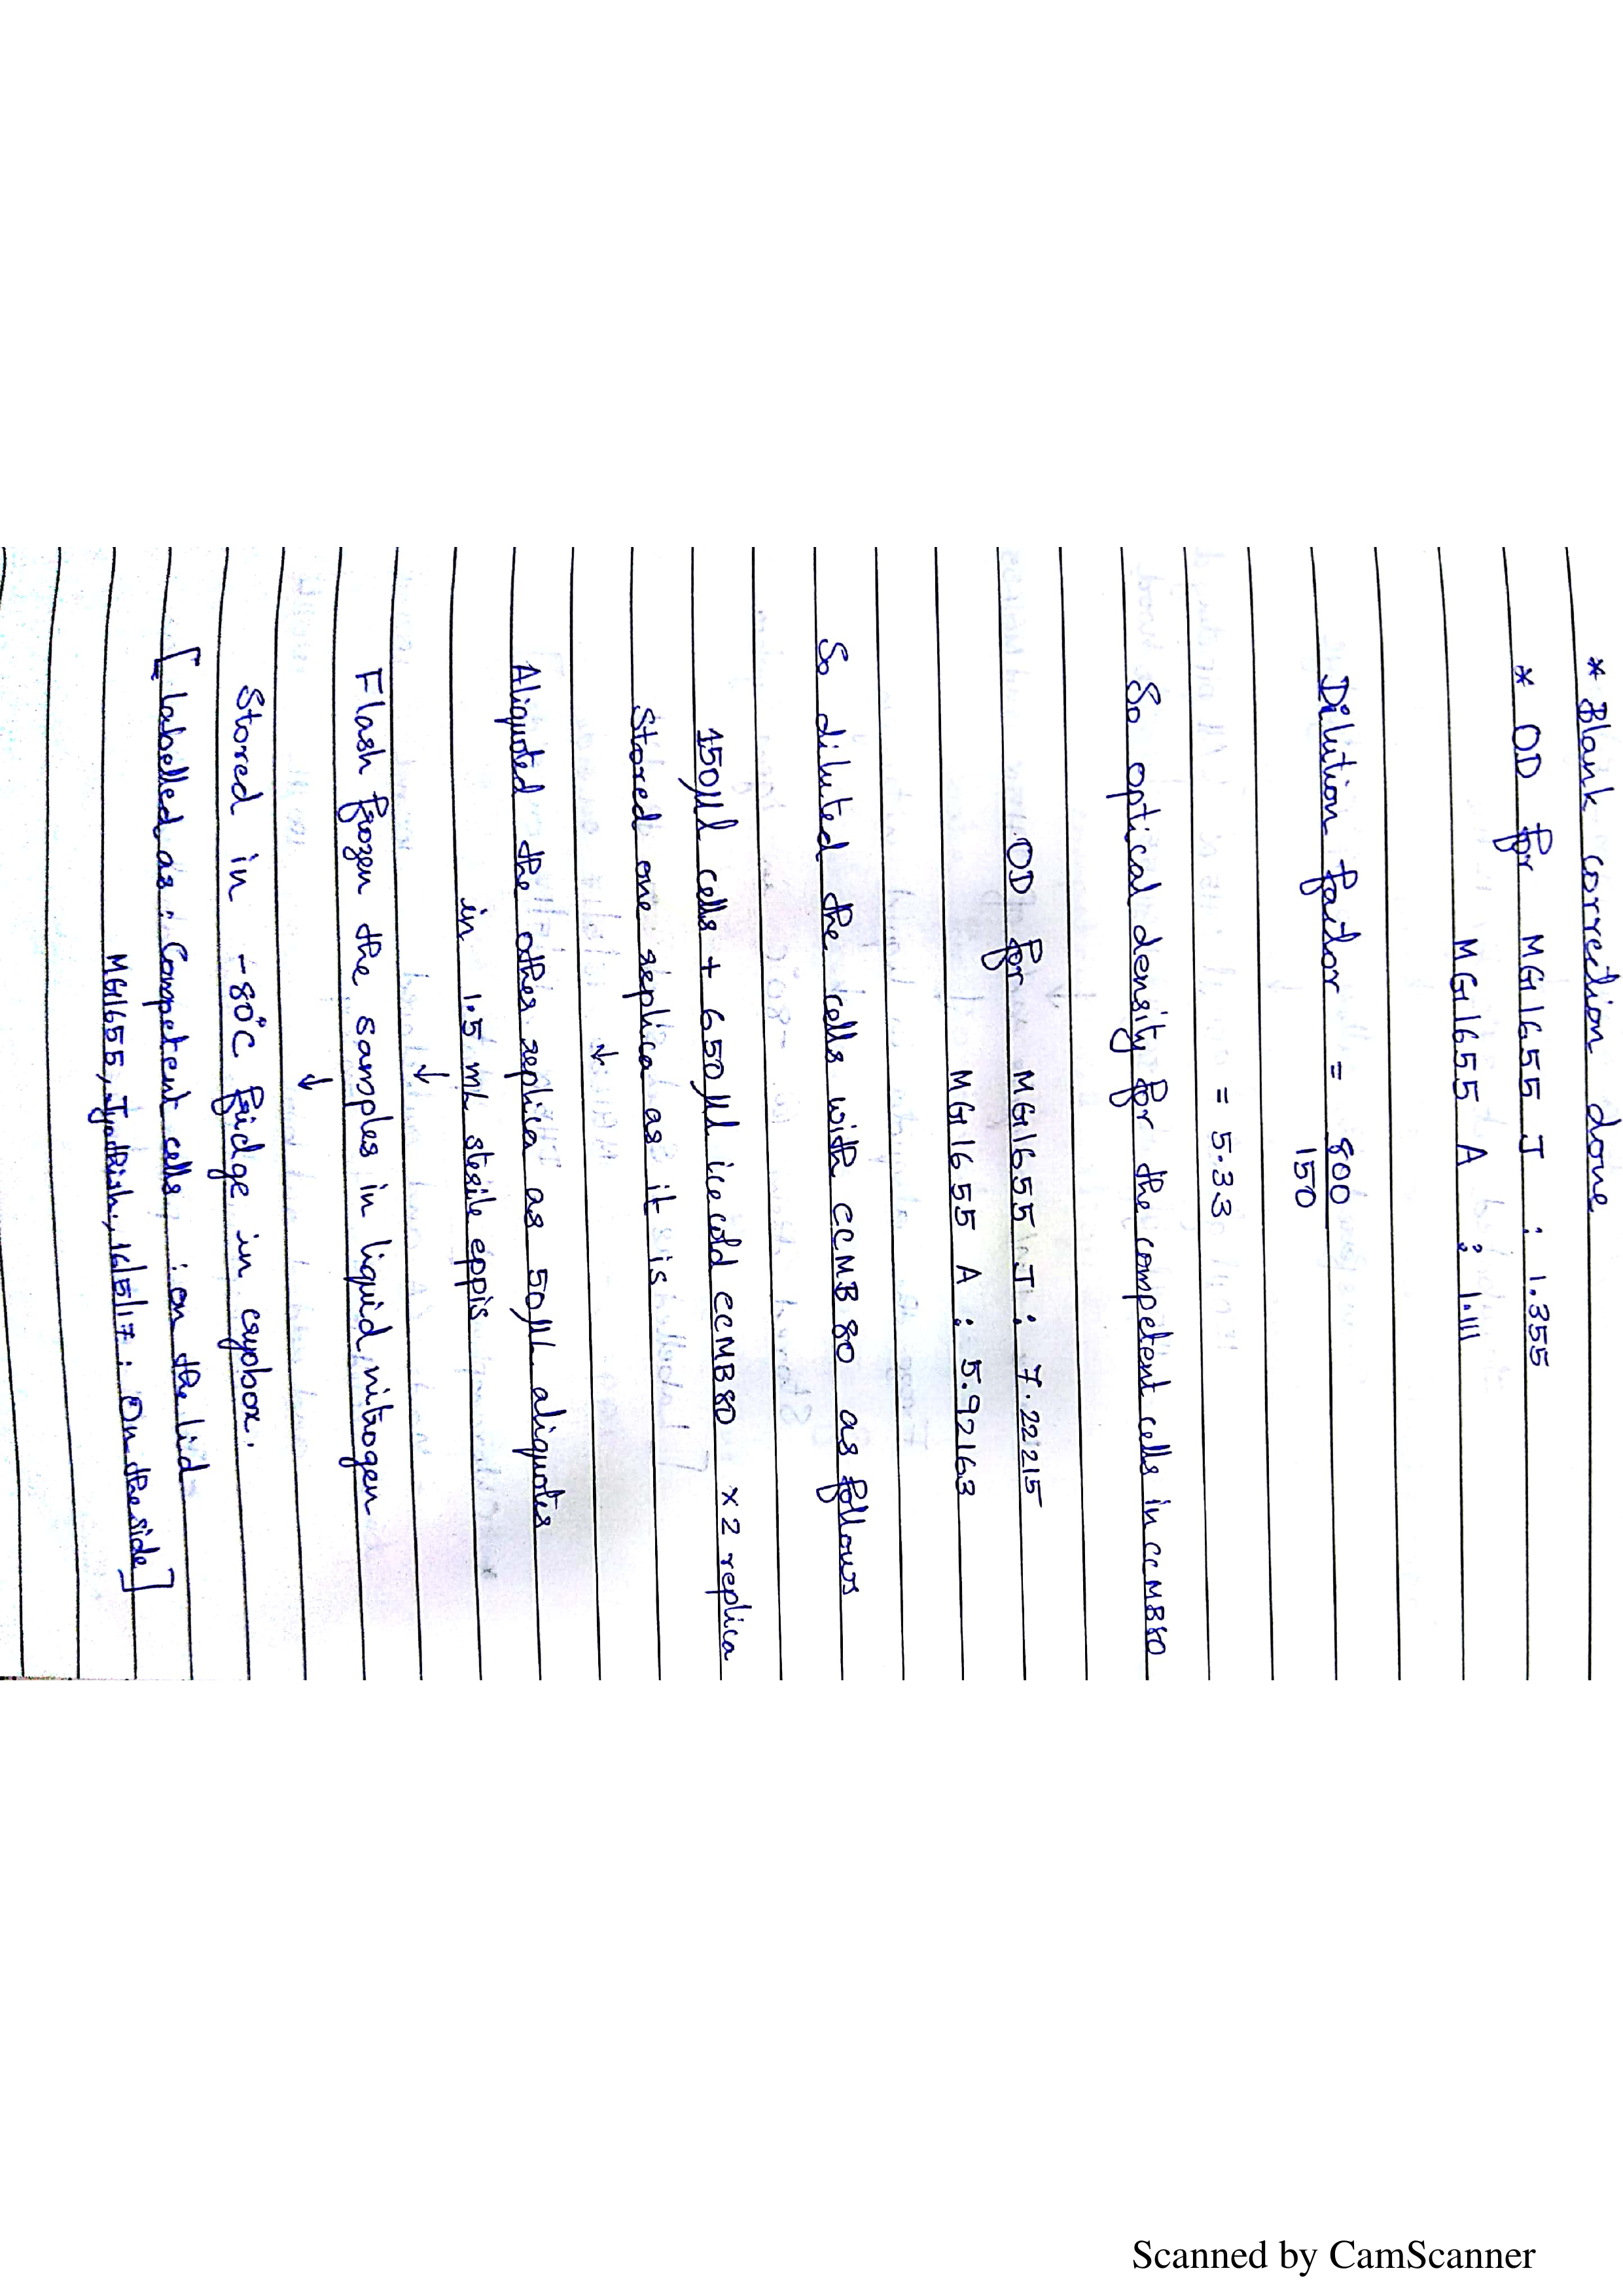 * Blank correction done
* OD for MG1655 J : 1.355
MG1655 A : 1.111
Dilution factor = 800
150
= 5.33
So optical density for the competent cells in CCMB80
OD for MG1655 J : 7.22215
MG1655 A : 5.92163
So diluted the cells with CCMB 80 as follows
150µl cells + 650µl ice cold CCMB80 x 2 replica
Stored one replica as it is
↓
Aliquoted the other replica as 50µL aliquotes
in 1.5 mL sterile eppis
↓
Flash frozen the samples in liquid nitrogen
↓
Stored in -80°C fridge in cryobox.
[labelled as : Competent cells : on the lid
MG1655, Jyothish, 16/5/17 : On the side]
Scanned by CamScanner